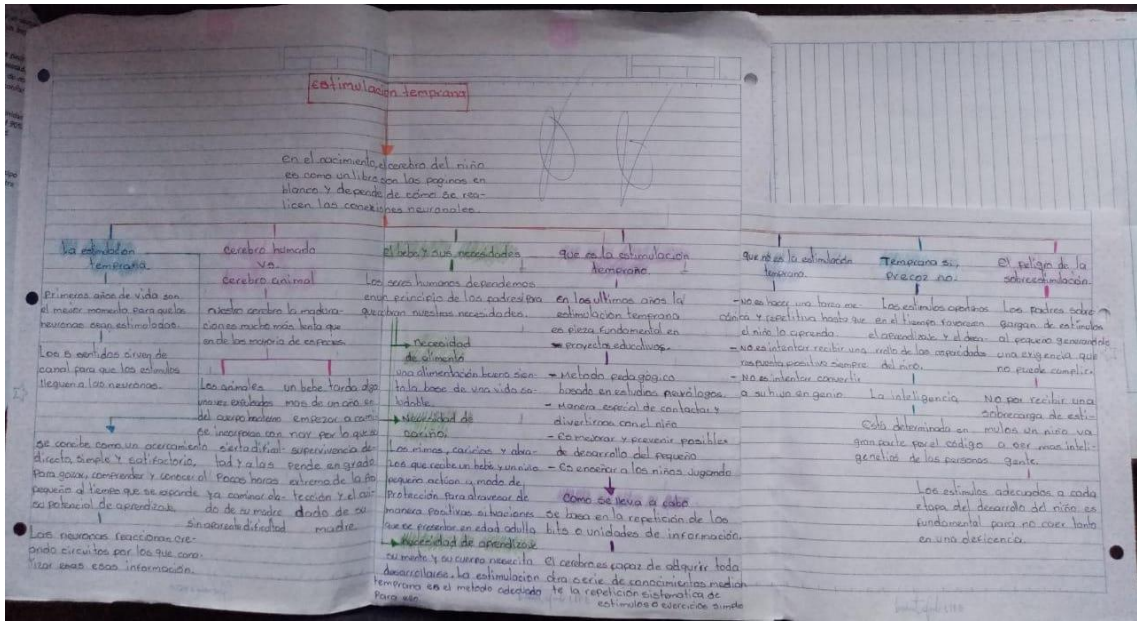 estimulación temprana
en el nacimiento, el cerebro del niño
es como un libro con las paginas en
blanco y depende de cómo se rea-
licen las conexiones neuronales.
La estimulacion
temprana.
Primeros años de vida son
el mejor momento para que las
neuronas sean estimuladas.
Los 5 sentidos sirven de
canal para que los estimulos
lleguen a las neuronas.
se concibe como un acercamiento
directa, simple y satisfactorio,
para gozar, comprender y conocer al
pequeño al tiempo que se expande
su potencial de aprendizaje.
Las neuronas reaccionan cre-
ando circuitos por los que
esas información.
cerebro humado
vs.
cerebro animal
nuestro cerebro la madura-
ciones mucho más lenta que
en de las mayoria de especies.
Los animales
una vez expulsados
del cuerpo materno
se incorporan con
cierta dificul-
tad y a las
Pocas horas
ya caminar
do de su madre
sin aparente dificultad
un bebe tarda algo
mas de un año en
empezar a cami-
nar por lo que su
supervivencia de-
pende en grado
extrema de la pro
tección y el cui-
dado de su
madre
el bebe y sus necesidades
Los seres humanos dependemos
en un principio de los padres para
que cubran nuestras necesidades.
necesidad
de alimento
una alimentación buena sien-
ta la base de una vida sa-
ludable.
Necesidad de
cariño:
Los mimos, caricias y abra-
zos que recibe un bebé y un niño
pequeño actúan a modo de
Protección para atravesar de
manera positivas situaciones
que se presentan en edad adulta
Necesidad de aprendizaje
su mente y su cuerpo necesita
desarrollarse. La estimulación
temprana es el metodo adecuado
Para ello.
que es la estimulación
temprana.
en los ultimos años la
estimulación temprana
es pieza fundamental en
proyectos educativos.
- Metodo pedagógico
basado en estudios neurólogos
- Manera especial de contactar y
divertirnos con el niño
- Es mejorar y prevenir posibles
de desarrollo del pequeño
- Es enseñar a los niños Jugando
como se lleva a cabo
se basa en la repetición de los
bits o unidades de información.
el cerebro es capaz de adquirir toda
otra serie de conocimientos median
te la repetición sistematica de
estimulos o ejercicios simple
que no es la estimulación
temprana.
- No es hacer una tarea me-
cánica y repetitiva hasta que
el niño lo aprenda.
- No es intentar recibir una
respuesta positiva siempre
- No es intentar convertir
a su hijo en genio.
Temprana si,
precoz no.
Los estimulos oportunos
en el tiempo favorecen
el aprendizaje y el desa-
rrollo de las capacidades
del niño.
La inteligencia
está determinada en
gran parte por el código
genetico de las personas
el peligro de la
sobreestimulación.
Los padres sobre
gargan de estimulos
al pequeño generandole
una exigencia que
no puede cumplir.
No por recibir una
sobrecarga de esti-
mulos un niño va
a ser mas inteli-
gente.
Los estimulos adecuados a cada
etapa del desarrollo del niño es
fundamental para no caer tanto
en una deficencia.